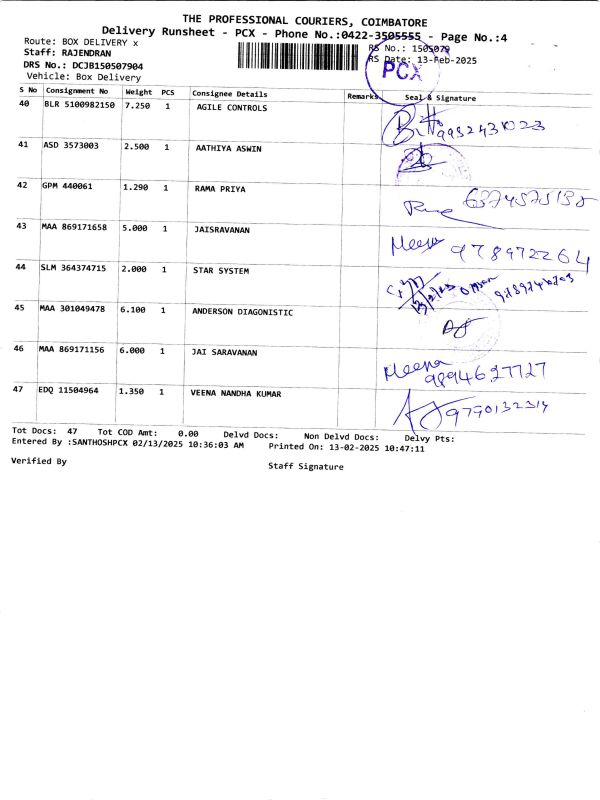 THE PROFESSIONAL COURIERS, COIMBATORE
Delivery Runsheet - PCX - Phone No.:0422-3505555 - Page No.:4
Route: BOX DELIVERY x
RS No.: 1505079
Staff: RAJENDRAN
RS Date: 13-Feb-2025
DRS No.: DCJB150507904
PCX
Vehicle: Box Delivery
S No Consignment No Weight PCS Consignee Details Remarks Seal & Signature
40 BLR 5100982150 7.250 1 AGILE CONTROLS
41 ASD 3573003 2.500 1 AATHIYA ASWIN
42 GPM 440061 1.290 1 RAMA PRIYA
43 MAA 869171658 5.000 1 JAISRAVANAN Meena 978972264
44 SLM 364374715 2.000 1 STAR SYSTEM
45 MAA 301049478 6.100 1 ANDERSON DIAGONISTIC
46 MAA 869171156 6.000 1 JAI SARAVANAN Meena 9894627727
47 EDQ 11504964 1.350 1 VEENA NANDHA KUMAR
Tot Docs: 47 Tot COD Amt: 0.00 Delvd Docs: Non Delvd Docs: Delvy Pts:
Entered By :SANTHOSHPCX 02/13/2025 10:36:03 AM Printed On: 13-02-2025 10:47:11
Verified By Staff Signature